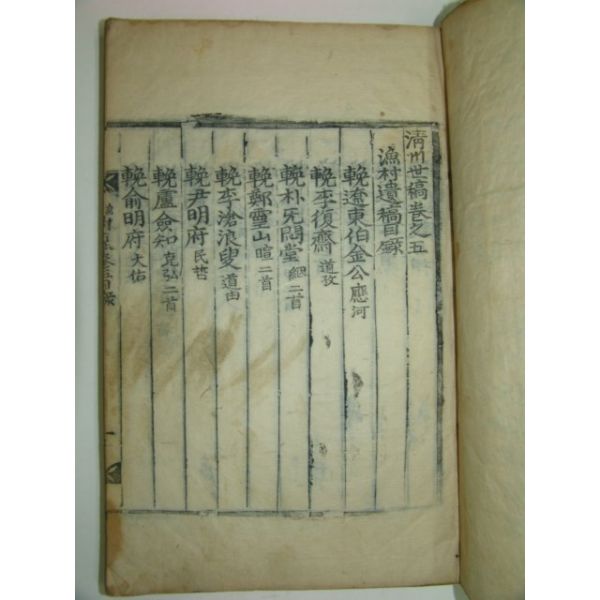 清州世稿卷之五
漁村遺稿目錄
輓遼東伯金公應河
輓李復齋道孜
輓朴无悶堂絪二首
輓鄭雪山暄二首
輓李滄浪叟道由
輓尹明府民哲
輓盧僉知克弘二首
輓俞明府大佑